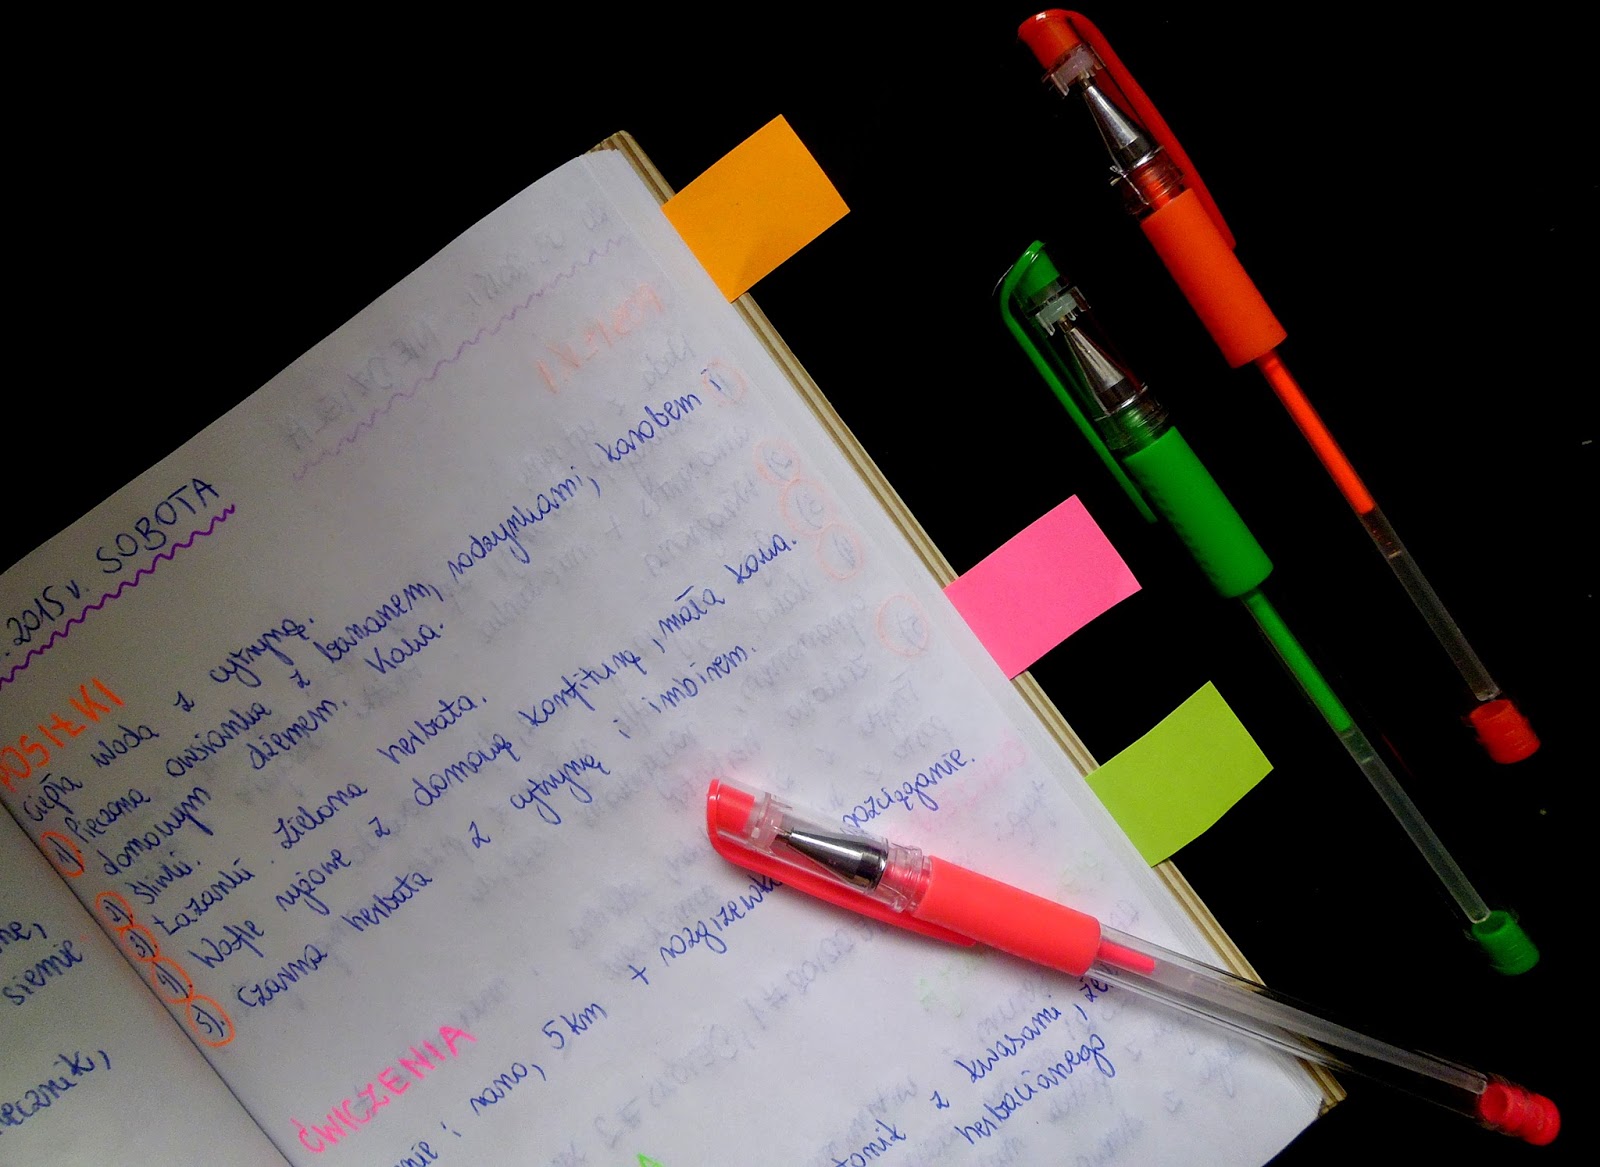 . 2015 r. SOBOTA
POSIŁKI
Ciepła woda z cytryną.
1). Pieczona owsianka z bananem, rodzynkami, karobem i
domowym dżemem. Kawa.
2). Śliwki.
3). Łazanki. Zielona herbata.
4). Wafle ryżowe z domową konfiturą, mała kawa.
5). Czarna herbata z cytryną i imbirem.
ĆWICZENIA
rano, 5 km + rozgrzewka rozciąganie.
z kwasami,
herbacianego
siemię